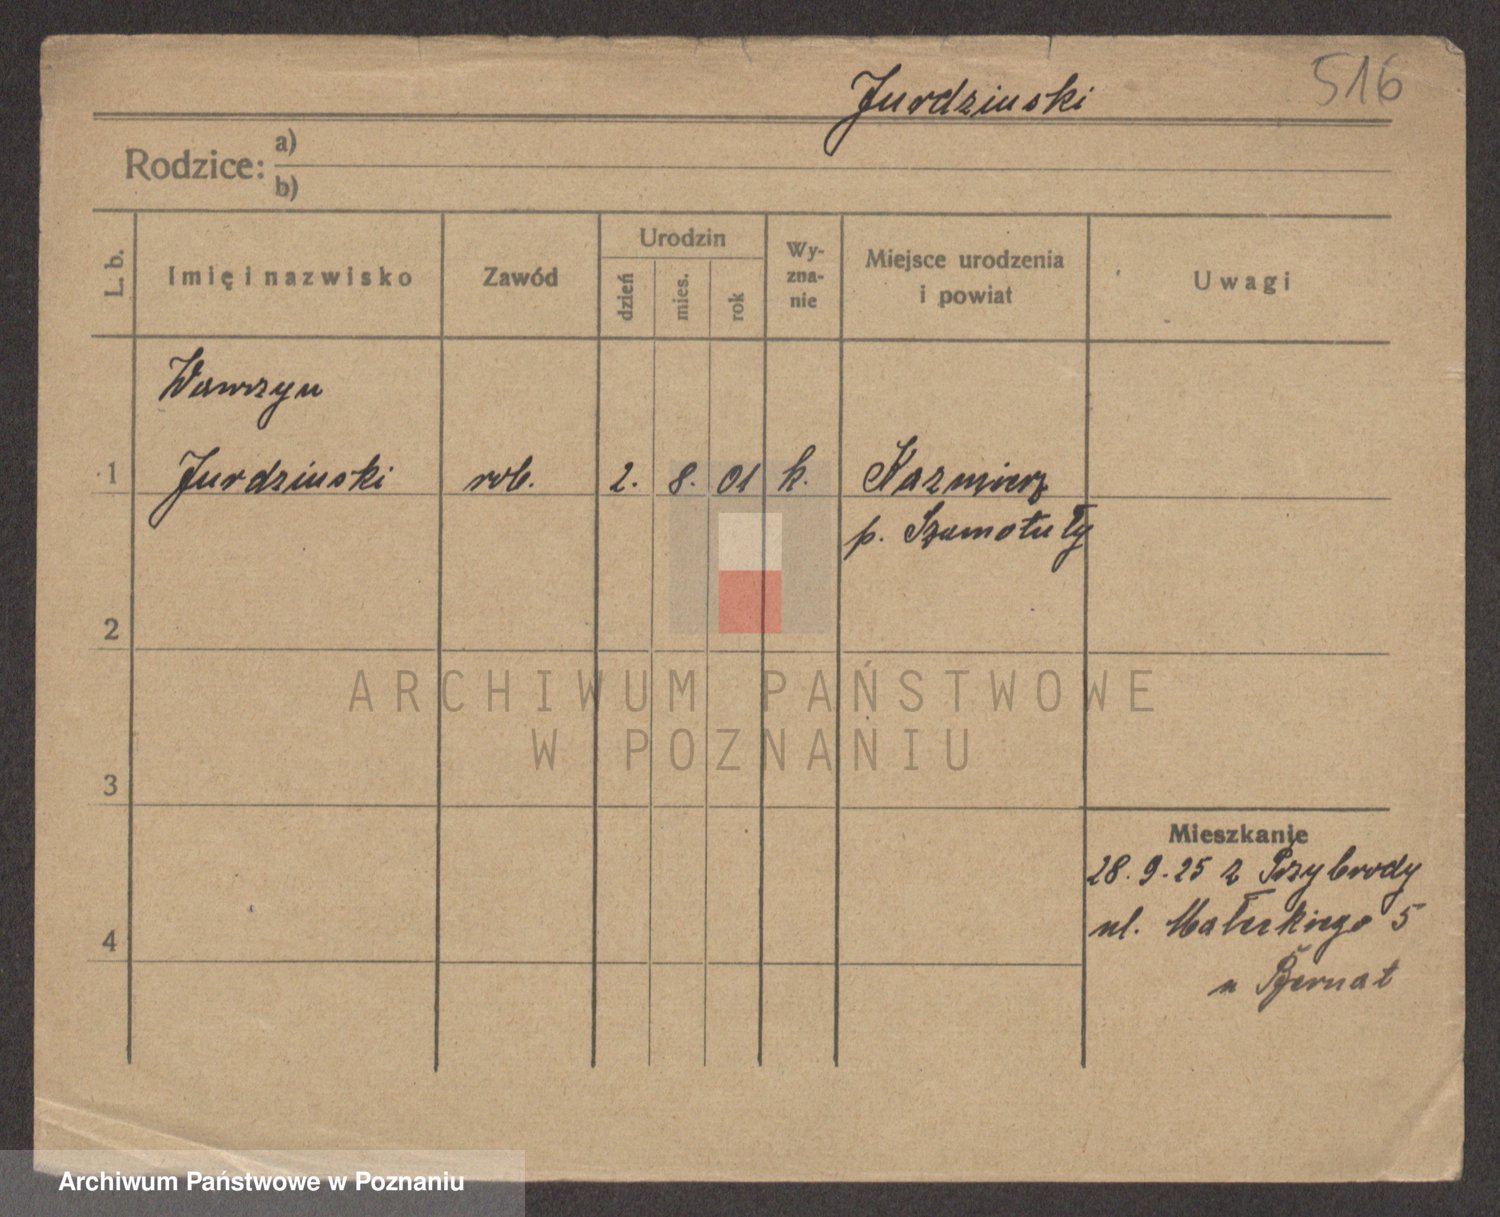 516
Jurdzinski
Rodzice:
a)
b)
L. b.
Imię i nazwisko
Zawód
Urodzin
dzień
mies.
rok
Wy-
zna-
nie
Miejsce urodzenia
i powiat
Uwagi
Wawrzyn
1 Jurdzinski rob. 2. 8. 01 k. Kazmierz
p. Szamotuły
2
3
4
Mieszkanie
28. 9. 25 z Przybrody
ul. Małeckiego 5
u Bernat
ARCHIWUM PAŃSTWOWE
W POZNANIU
Archiwum Państwowe w Poznaniu